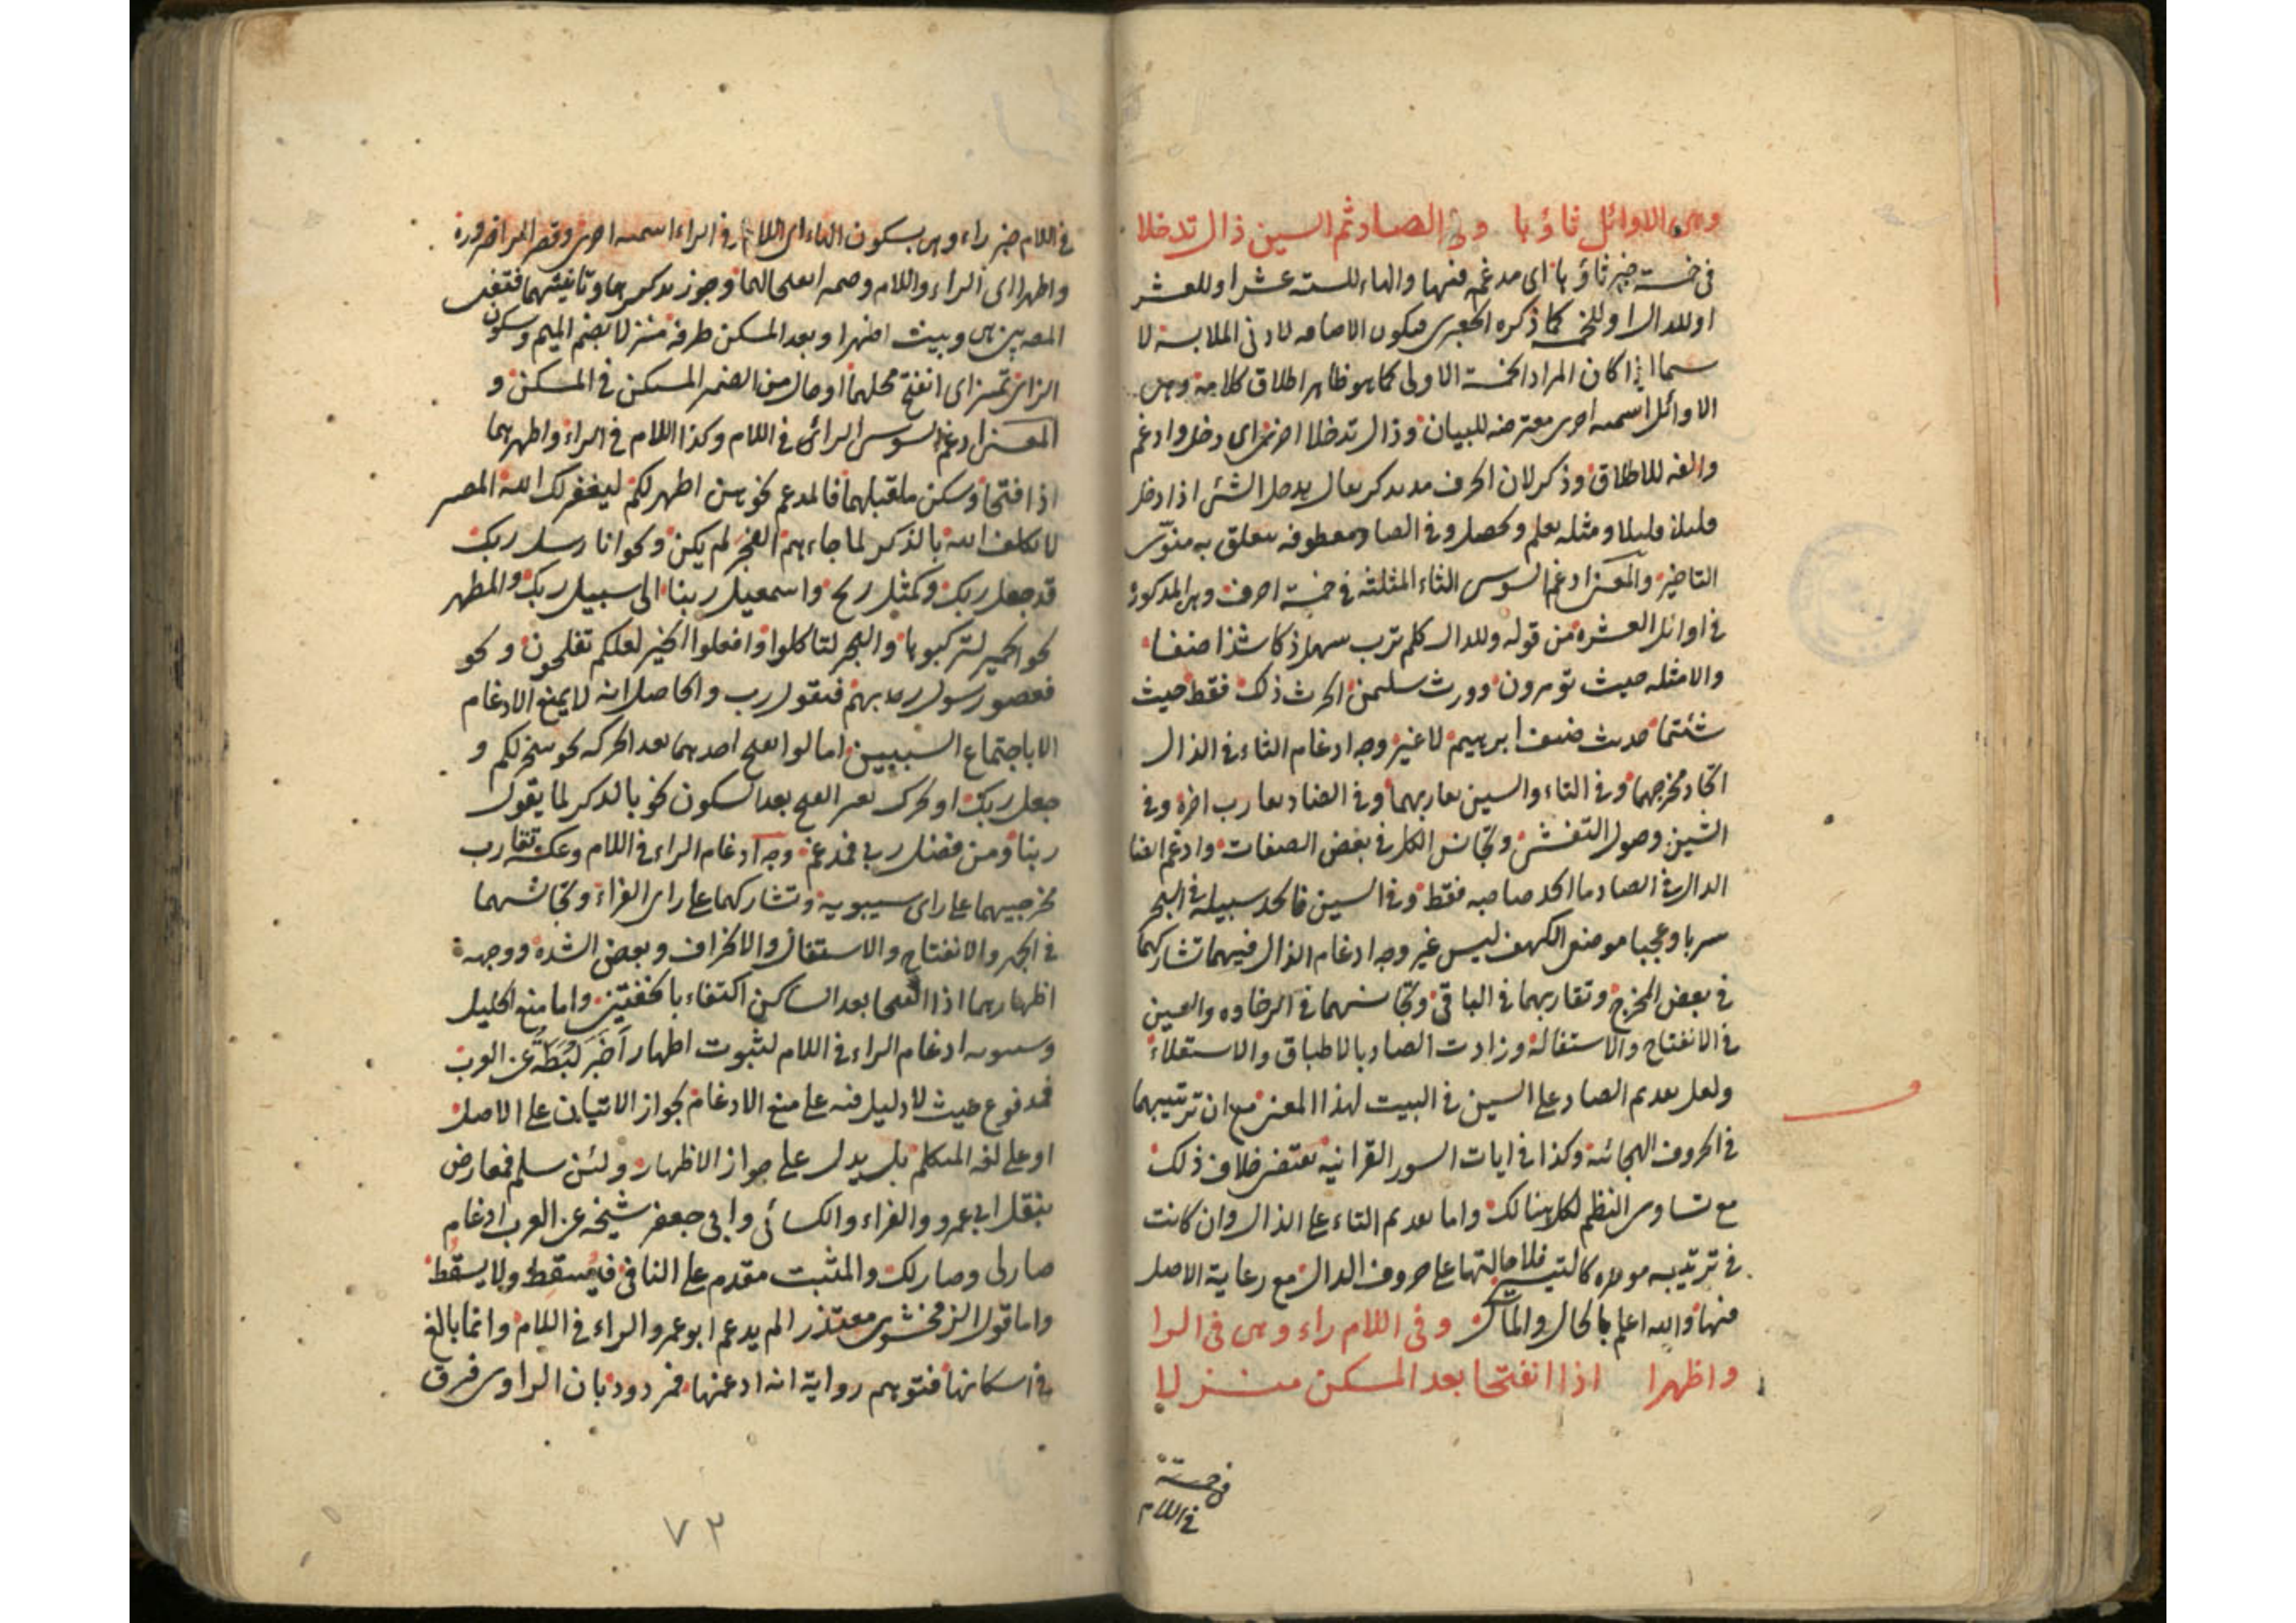 وهي الاوائل ثاؤها وفي الصاد ثم السين ذال تدخلا
في خمسة خبر ثاؤها اي مدغم فيها والهاء للستة عشر او للعشر
او للدال او للخمسة كما ذكره الجعبري فيكون الاضافه لادنى الملابسة لا
سيما اذا كان المراد الخمسة الاولى كما هو ظاهر اطلاق كلامه وهي
الاوائل اسميه اخرى معترضه للبيان وذال تدخلا اخرى اي دخل وادغم
والفه للاطلاق وذكر لان الحرف قد يذكر يقال تدخل الشئ اذا دخل
قليلا قليلا ومثله تعلم وتحصل وفي الصاد معطوفه متعلق به منوى
التاخير والمعنى ادغم السوسي الثاء المثلثة في خمسة احرف وهي المذكورة
في اوائل العشره من قوله وللدال كلم ترب سهل ذكا شذا ضفا
والامثله حيث تؤمرون وورث سليمن الحرث ذلك فقط حيث
شئتما حديث ضيف ابرهيم لا غير وجه ادغام الثاء في الذال
اتحاد مخرجهما وفي التاء والسين تقاربهما وفي الضاد تقارب اخره وفي
الشين وصول التفشي وتجانس الكل في بعض الصفات وادغم ايضا
الذال في الصاد ما اتخذ صاحبه فقط وفي السين فاتخذ سبيله في البحر
سربا وعجبا موضعي الكهف ليس غير وجه ادغام الذال فيهما تشاركهما
في بعض المخرج وتقاربهما في الباقي وتجانسهما في الرخاوه والسين
في الانفتاح والاستفاله وزادت الصاد بالاطباق والاستعلاء
ولعل تقديم الصاد على السين في البيت لهذا المعنى مع ان ترتيبهما
في الحروف الهجائية وكذا في ايات السور القرانيه يقتضي خلاف ذلك
مع تساوي النظم لكل هنالك واما تقديم الثاء على الذال وان كانت
في ترتيبه موخره كالتيسير فلاحالتها على حروف الدال مع رعاية الاصل
فيها والله اعلم بالحال والمآل وفي اللام راء وهي في الرا
واظهرا اذا انفتحا بعد المسكن منزلا
في خمسة
في اللام
في اللام خبر راء وهي بسكون الهاء اي اللام في الراء اسميه اخرى وقصر الراء ضرورة
واظهرا اي الراء واللام وضميرا انفتحا لهما وجوز تذكيرهما وتانيثهما فقفى
المصرين هي وبيت اظهرا وبعد المسكن طرفه منزلا بضم الميم وسكون
الزاي تميز اي انفتح محلهما او حال من الضمير المسكن في المسكن و
المعنى ادغم السوسي الراء في اللام وكذا اللام في الراء واظهرهما
اذا فتحا وسكن ما قبلهما فالمدغم نحو هن اطهر لكم ليغفر لك الله المصير
لا يكلف الله بالذكر لما جاءهم الفجر لم يكن ونحو انا رسل ربك
قد جعل ربك وكمثل ريح واسمعيل ربنا الى سبيل ربك والمظهر
نحو الحمير لتركبوها والبحر لتاكلوا وافعلوا الخير لعلكم تفلحون ونحو
فعصوا رسول ربهم فيقول رب والحاصل انه لا يمنع الادغام
الا باجتماع السببين اما لو انفتح احدهما بعد الحركه نحو سخر لكم و
جعل ربك او تحرك بغير الفتح بعد السكون نحو بالذكر لما يقول
ربنا ومن فضل ربي فمدغم وجه ادغام الراء في اللام وعكسه تقارب
مخرجيهما على راي سيبويه وتشاركهما على راي الفراء وتجانسهما
في الجهر والانفتاح والاستفال والانحراف وبعض الشده ووجه
اظهارهما اذا انفتحا بعد الساكن اكتفاء بالخفتين واما منع الخليل
وسيبويه ادغام الراء في اللام لثبوت اظهار اخبر لبطة عن العرب
فمدفوع حيث لا دليل فيه على منع الادغام لجواز الاتيان على الاصل
او على لغة المتكلم بل يدل على جواز الاظهار ولئن سلم فمعارض
بنقل ابي عمرو والفراء والكسائي وابي جعفر شيخه عن العرب ادغام
صار لي وصار لك والمثبت مقدم على النافي فيسقط ولا يسقط
واما قول الزمخشري معتذرا لم يدغم ابو عمرو الراء في اللام وانما بالغ
في اسكانها فتوهم رواية انه ادغمها فمردود بان الراوي فرق
٧٣